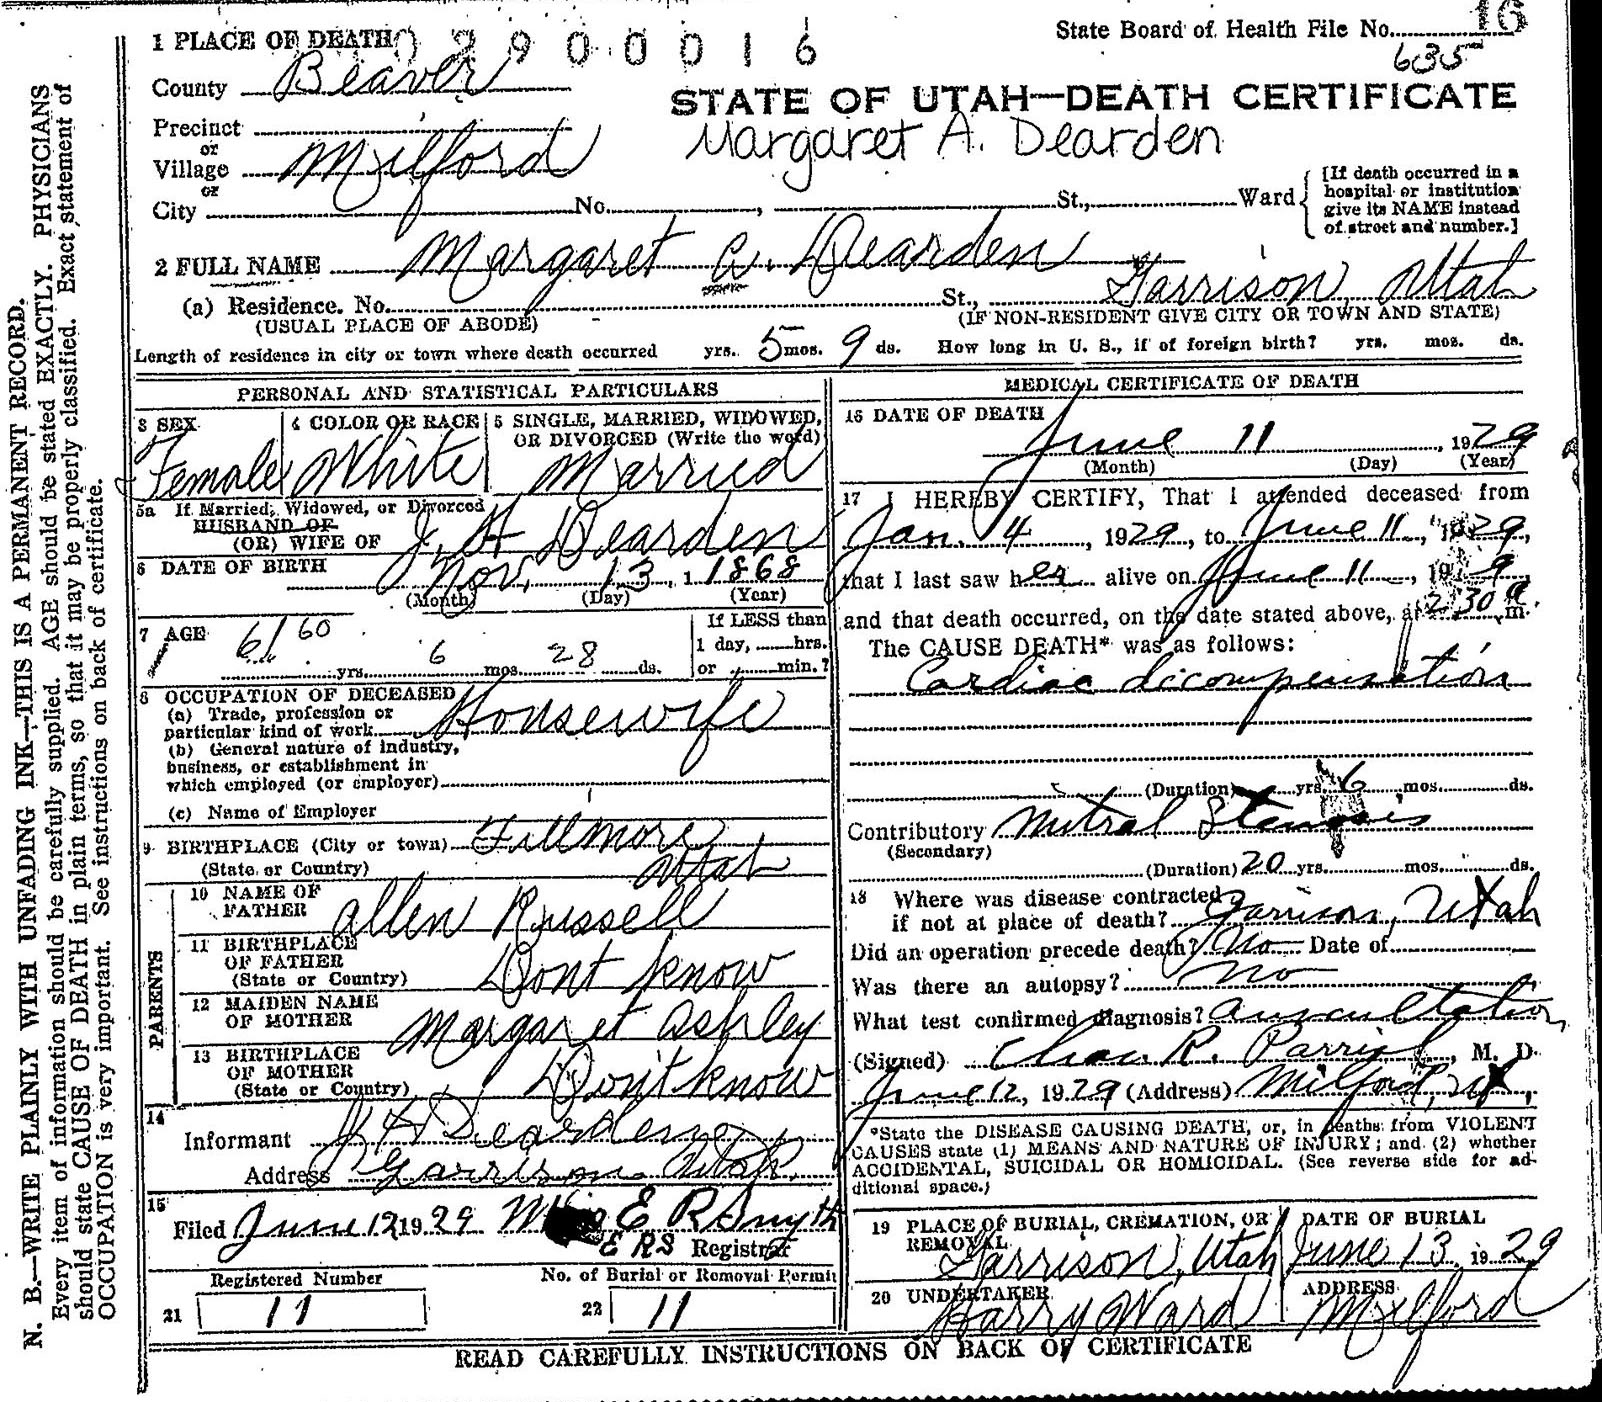 State Board of Health File No. 16
635
1 PLACE OF DEATH 02900016
County Beaver
STATE OF UTAH—DEATH CERTIFICATE
Precinct
or
Margaret A. Dearden
Village Milford
or
City No. , St., Ward
[If death occurred in a
hospital or institution
give its NAME instead
of street and number.]
2 FULL NAME Margaret A. Dearden
(a) Residence. No. St., Garrison, Utah
(USUAL PLACE OF ABODE) (IF NON-RESIDENT GIVE CITY OR TOWN AND STATE)
Length of residence in city or town where death occurred yrs. 5 mos. 9 ds. How long in U. S., if of foreign birth? yrs. mos. ds.
PERSONAL AND STATISTICAL PARTICULARS
3 SEX
Female
4 COLOR OR RACE
White
5 SINGLE, MARRIED, WIDOWED,
OR DIVORCED (Write the word)
Married
5a If Married, Widowed, or Divorced
HUSBAND OF
(OR) WIFE OF J. A Dearden
6 DATE OF BIRTH Nov. 13, 1 1868
(Month) (Day) (Year)
7 AGE 61 60 yrs. 6 mos. 28 ds.
If LESS than
1 day, hrs.
or min.?
8 OCCUPATION OF DECEASED
(a) Trade, profession or
particular kind of work Housewife
(b) General nature of industry,
business, or establishment in
which employed (or employer)
(c) Name of Employer
9 BIRTHPLACE (City or town) Fillmore
(State or Country) Utah
PARENTS
10 NAME OF
FATHER Allen Russell
11 BIRTHPLACE
OF FATHER
(State or Country) Dont know
12 MAIDEN NAME
OF MOTHER Margaret Ashley
13 BIRTHPLACE
OF MOTHER
(State or Country) Don't know
14
Informant J A Dearden
Address Garrison Utah
15
Filed June 12 1929 E R Smyth
E R S Registrar
Registered Number
21 11
No. of Burial or Removal Permit
22 11
MEDICAL CERTIFICATE OF DEATH
16 DATE OF DEATH
June 11, 1929
(Month) (Day) (Year)
17 I HEREBY CERTIFY, That I attended deceased from
Jan. 4, 1929, to June 11, 1929,
that I last saw her alive on June 11, 19 9,
and that death occurred, on the date stated above, at 2:30 a m.
The CAUSE DEATH* was as follows:
Cardiac dicompensation
(Duration) yrs. 6 mos. ds.
Contributory Mitral Stenosis
(Secondary)
(Duration) 20 yrs. mos. ds.
18 Where was disease contracted
if not at place of death? Garrison, Utah
Did an operation precede death? No Date of
Was there an autopsy? no
What test confirmed diagnosis? Auscultation
(Signed) Chas. R. Parrish, M. D.
June 12, 1929 (Address) Milford, Ut,
*State the DISEASE CAUSING DEATH, or, in deaths from VIOLENT
CAUSES state (1) MEANS AND NATURE OF INJURY; and (2) whether
ACCIDENTAL, SUICIDAL OR HOMICIDAL. (See reverse side for ad-
ditional space.)
19 PLACE OF BURIAL, CREMATION, OR
REMOVAL
Garrison, Utah
DATE OF BURIAL
June 13 1929
20 UNDERTAKER
Harry Ward
ADDRESS
Milford
READ CAREFULLY INSTRUCTIONS ON BACK OF CERTIFICATE
N. B.—WRITE PLAINLY WITH UNFADING INK—THIS IS A PERMANENT RECORD.
Every item of information should be carefully supplied. AGE should be stated EXACTLY. PHYSICIANS
should state CAUSE OF DEATH in plain terms, so that it may be properly classified. Exact statement of
OCCUPATION is very important. See instructions on back of certificate.